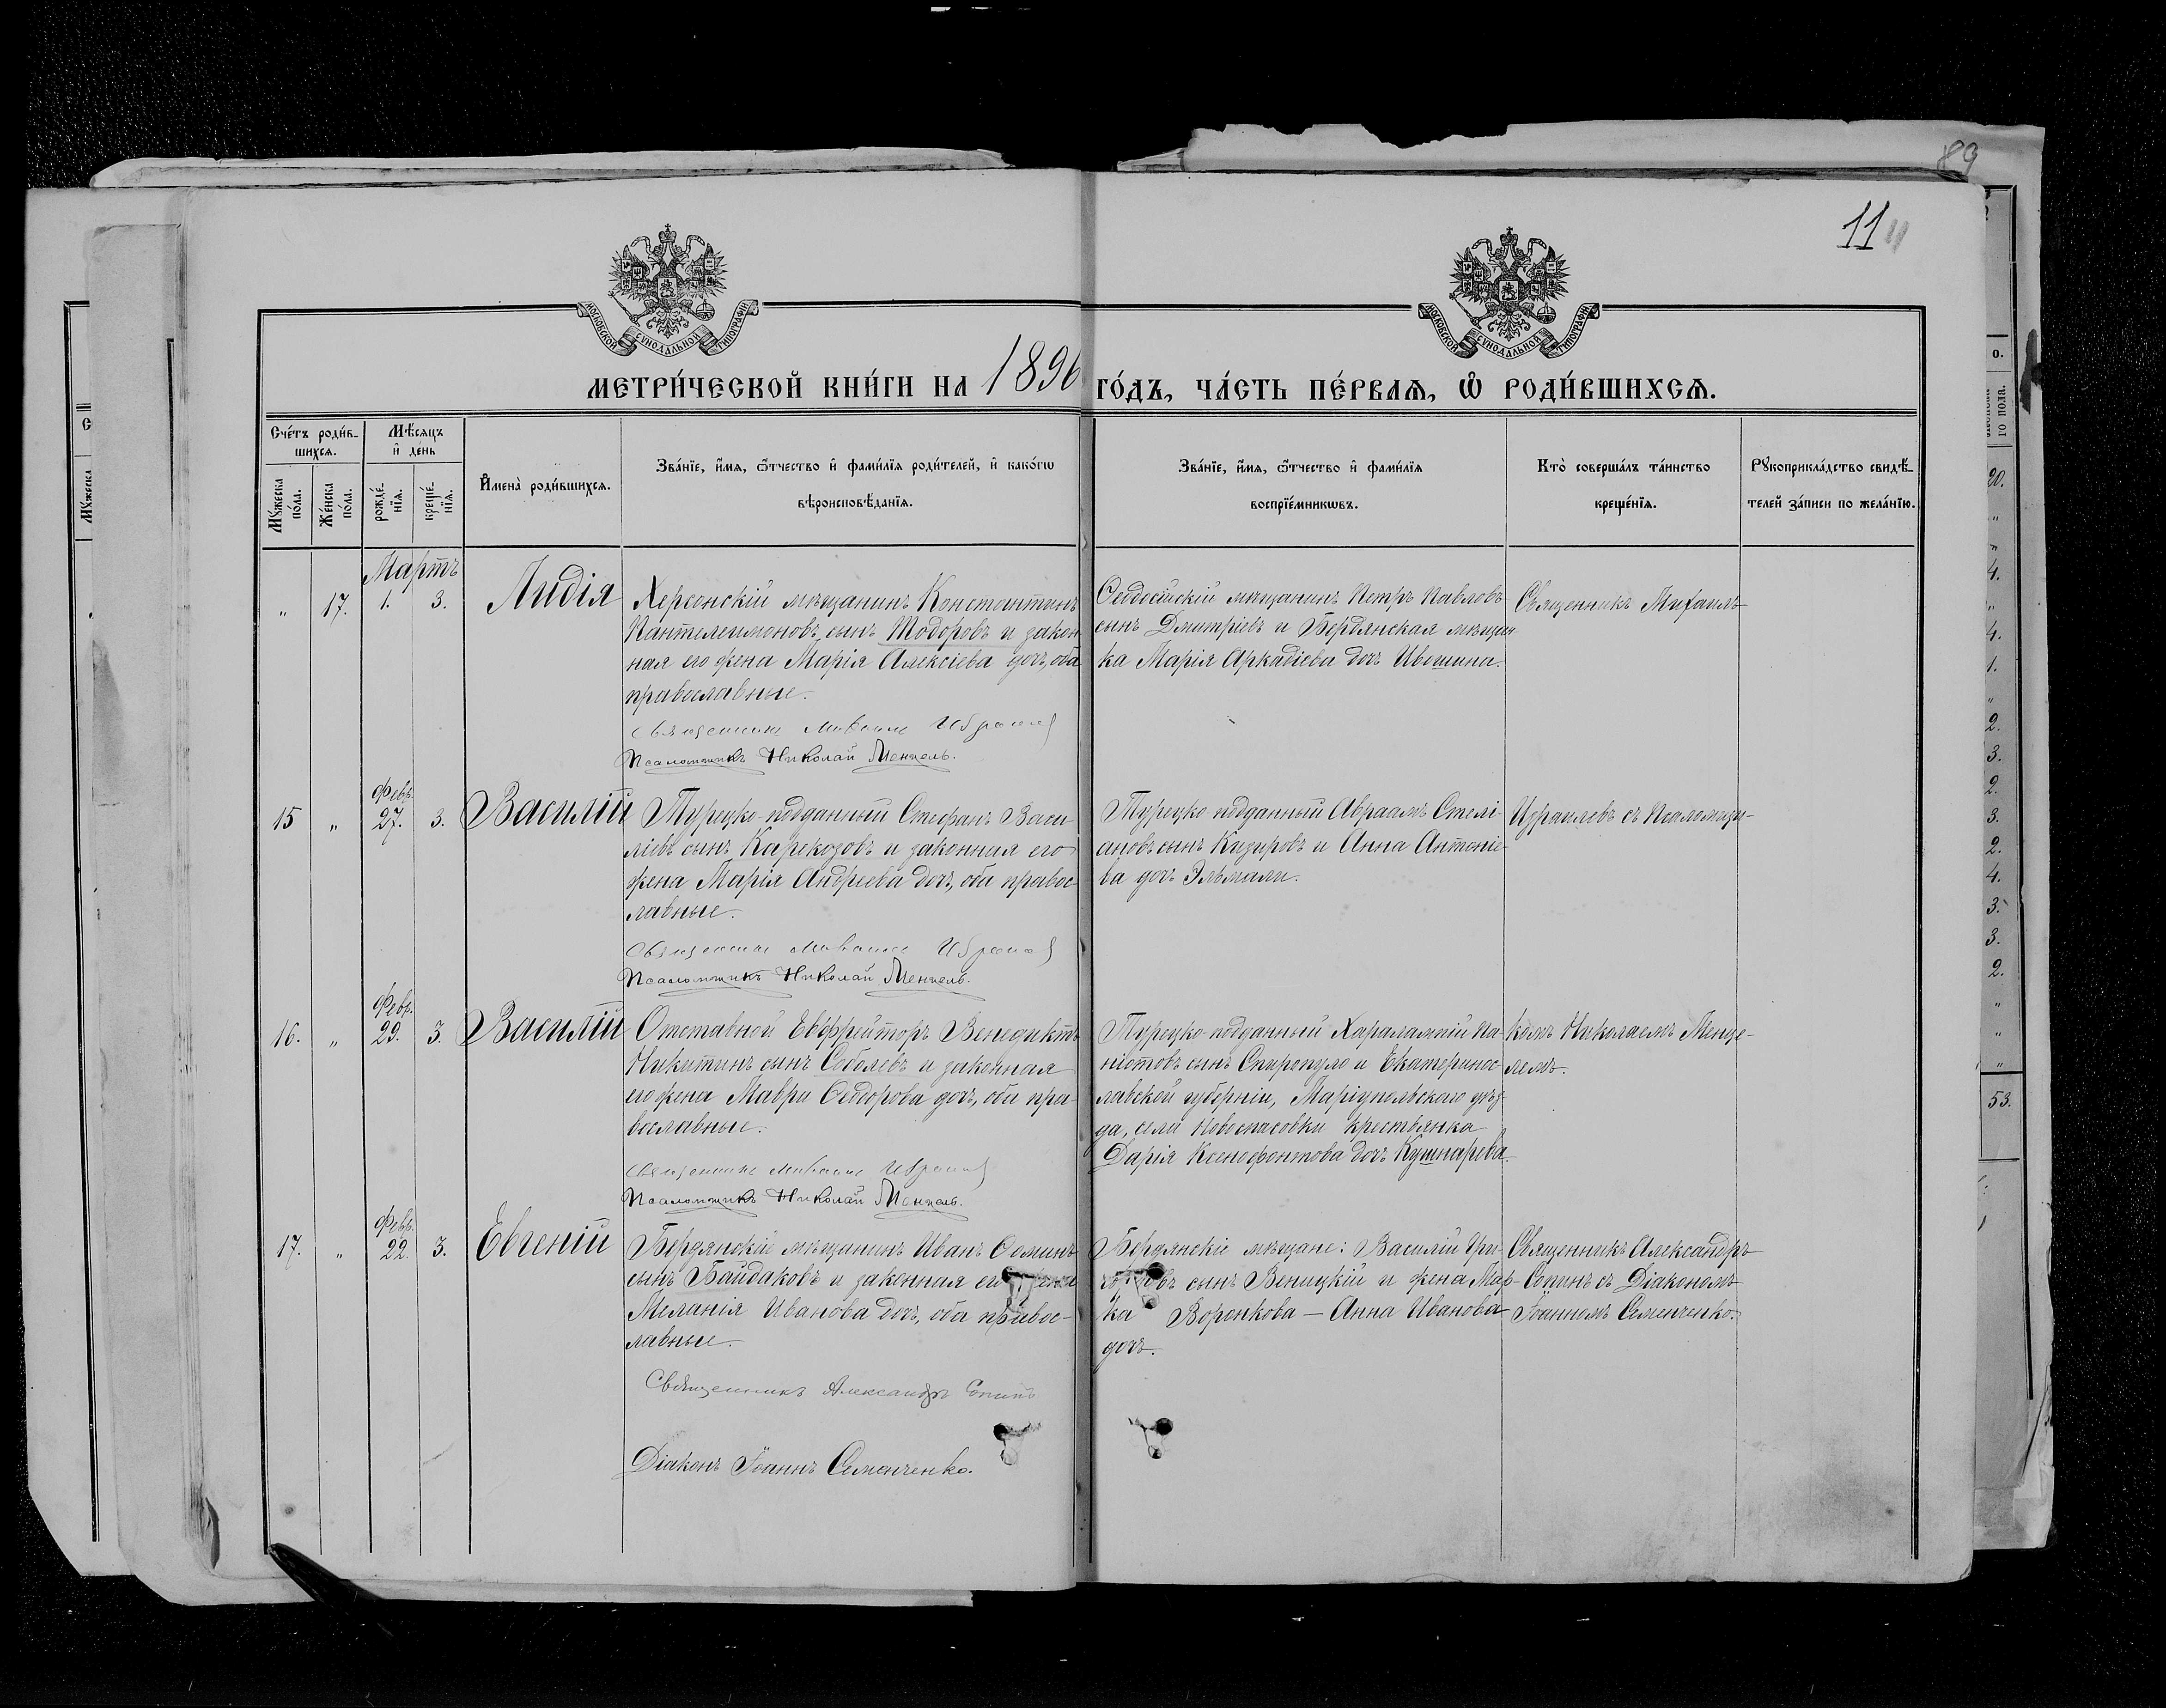 89
11 11
МОСКОВСКОЙ СУНОДАЛЬНОЙ ТИПОГРАФІИ
МОСКОВСКОЙ СУНОДАЛЬНОЙ ТИПОГРАФІИ
МЕТРИ́ЧЕСКОЙ КНИ́ГИ НА 1896 ГО́ДЪ, ЧА́СТЬ ПЕ́РВАѦ, Ѡ҆ РОДИ́ВШИХСѦ.
Сче́тъ роди́в-
шихсѧ.
Мꙋ́жеска
по́ла.
Же́нска
по́ла.
Мѣ́сѧцъ
и҆ де́нь
рожде́-
нїѧ.
креще́-
нїѧ.
И҆мена̀ роди́вшихсѧ.
Зва́нїе, и҆́мѧ, ѻ҆́тчество и҆ фами́лїѧ роди́телей, и҆ како́гѡ
вѣроисповѣ́данїѧ.
Зва́нїе, и҆́мѧ, ѻ҆́тчество и҆ фами́лїѧ
воспрїе́мникѡвъ.
Кто̀ соверша́лъ та́инство
креще́нїѧ.
Рꙋкоприкла́дство свидѣ́-
телей за́писи по жела́нїю.
Мартъ
" 17. 1. 3. Лидія
Херсонскій мѣщанинъ Константинъ
Пантелеимоновъ сынъ Тодоровъ и закон
ная его жена Марія Алексіева дочъ, оба
православные.
Псаломщикъ Николай Менцель.
Ѳеодосійскій мѣщанинъ Петръ Павловъ
сынъ Дмитріевъ и Бердянская мѣщан
ка Марія Аркадіева дочъ Ивошина.
Священникъ Михаилъ
Февр.
15 " 27. 3. Василій
Турецко-подданный Стефанъ Васи-
ліевъ сынъ Карекозовъ и законная его
жена Марія Андреева дочъ, оба правос-
лавные.
Псаломщикъ Николай Менцель.
Турецко-подданный Авраамъ Стелі-
ановъ сынъ Кизировъ и Анна Антоніе-
ва дочъ Эльмали.
Израилевъ съ Псаломщи-
Февр.
16. " 29. 3. Василій
Отставной Ефрейторъ Венедиктъ
Никитинъ сынъ Соболевъ и законная
его жена Мавра Ѳеодорова дочъ, оба пра-
вославные.
Псаломщикъ Николай Менцель.
Турецко-подданный Харалампій Па-
ніотовъ сынъ Спиропуло и Екатеринос-
лавской губерніи, Маріупольскаго уѣз-
да, села Новоспасовки крестьянка
Дарія Ксенофонтова дочъ Кушнарева.
комъ Николаемъ Менце-
лемъ.
Февр.
17. " 22. 3. Евгеній
Бердянскій мѣщанинъ Иванъ Ѳоминъ
сынъ Байдаковъ и законная его жена
Меланія Иванова дочъ, оба правос-
лавные.
Священникъ Александръ Сопинъ
Діаконъ Іоаннъ Семенченко.
Бердянскіе мѣщане: Василій Гри-
горьевъ сынъ Веницкій и жена Мар-
ка Воронкова — Анна Иванова
дочъ.
Священникъ Александръ
Сопинъ съ Діакономъ
Іоанномъ Семенченко.
о.
го пола.
20.
"
"
4.
"
4.
1.
"
2.
3.
2.
3.
2.
4.
3.
3.
2.
"
"
"
53.